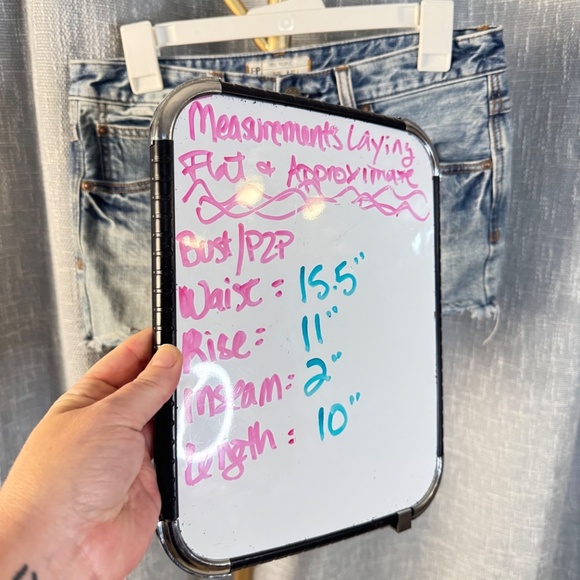 Measurements Laying
Flat + Approximate
Bust/P2P
Waist: 15.5"
Rise: 11"
Inseam: 2"
Length: 10"